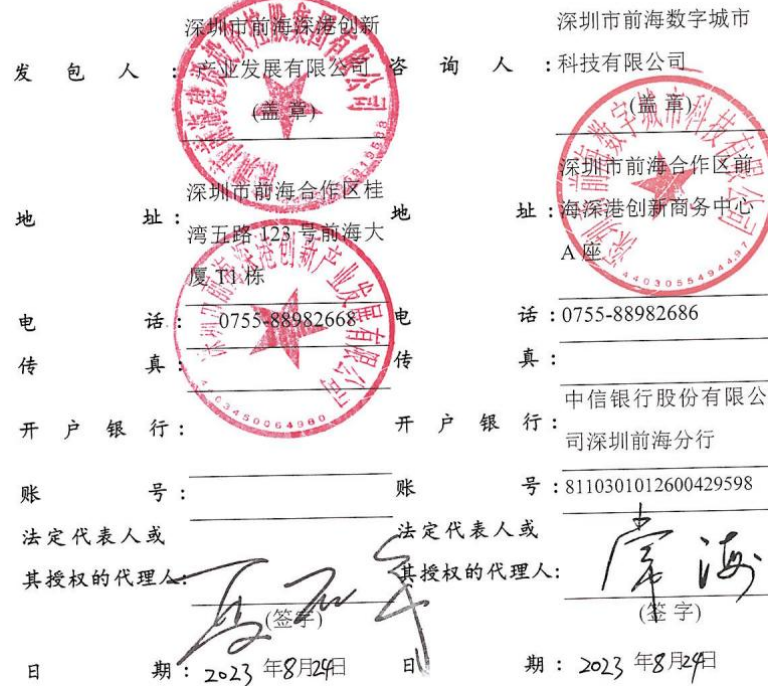 深圳市前海深港创新
发包人：产业发展有限公司
(盖 章)
地址：深圳市前海合作区桂
湾五路 123 号前海大
厦 T1 栋
电话：0755-88982668
传真：
开户银行：
账号：
法定代表人或
其授权的代理人:
(签字)
日期：2023 年8月24日
深圳市前海数字城市
咨询人：科技有限公司
(盖 章)
地址：深圳市前海合作区前
海深港创新商务中心
A 座
电话：0755-88982686
传真：
开户银行：中信银行股份有限公
司深圳前海分行
账号：8110301012600429598
法定代表人或
其授权的代理人:
常海
(签 字)
日期：2023 年8月24日
深圳市前海数字城市科技有限公司
深圳市前海深港创新产业发展有限公司